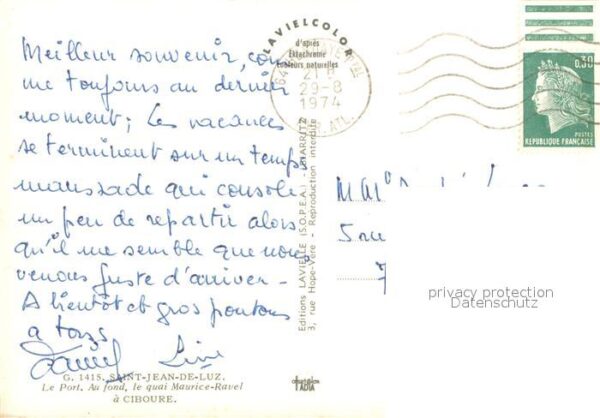 Meilleur souvenir, com
me toujours au dernier
moment ; Les vacances
se terminent sur un temps
maussade qui console
un peu de repartir alors
qu'il me semble que nous
venons juste d'arriver -
A bientôt et gros
à tous
G. 1415. SAINT-JEAN-DE-LUZ.
Le Port. Au fond, le quai Maurice-Ravel
à CIBOURE.
LAVIELCOLOR
d'après
Ektachrome
couleurs naturelles
29-8
1974
ATL.
Editions LAVIELLE (S.O.P.E.A.) - BIARRITZ
3, rue Hope-Vere - Reproduction interdite
0,30
POSTES
REPUBLIQUE FRANÇAISE
5 rue
7
privacy protection
Datenschutz